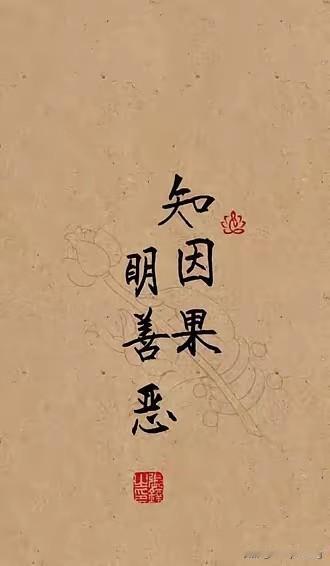 知因果
明善恶